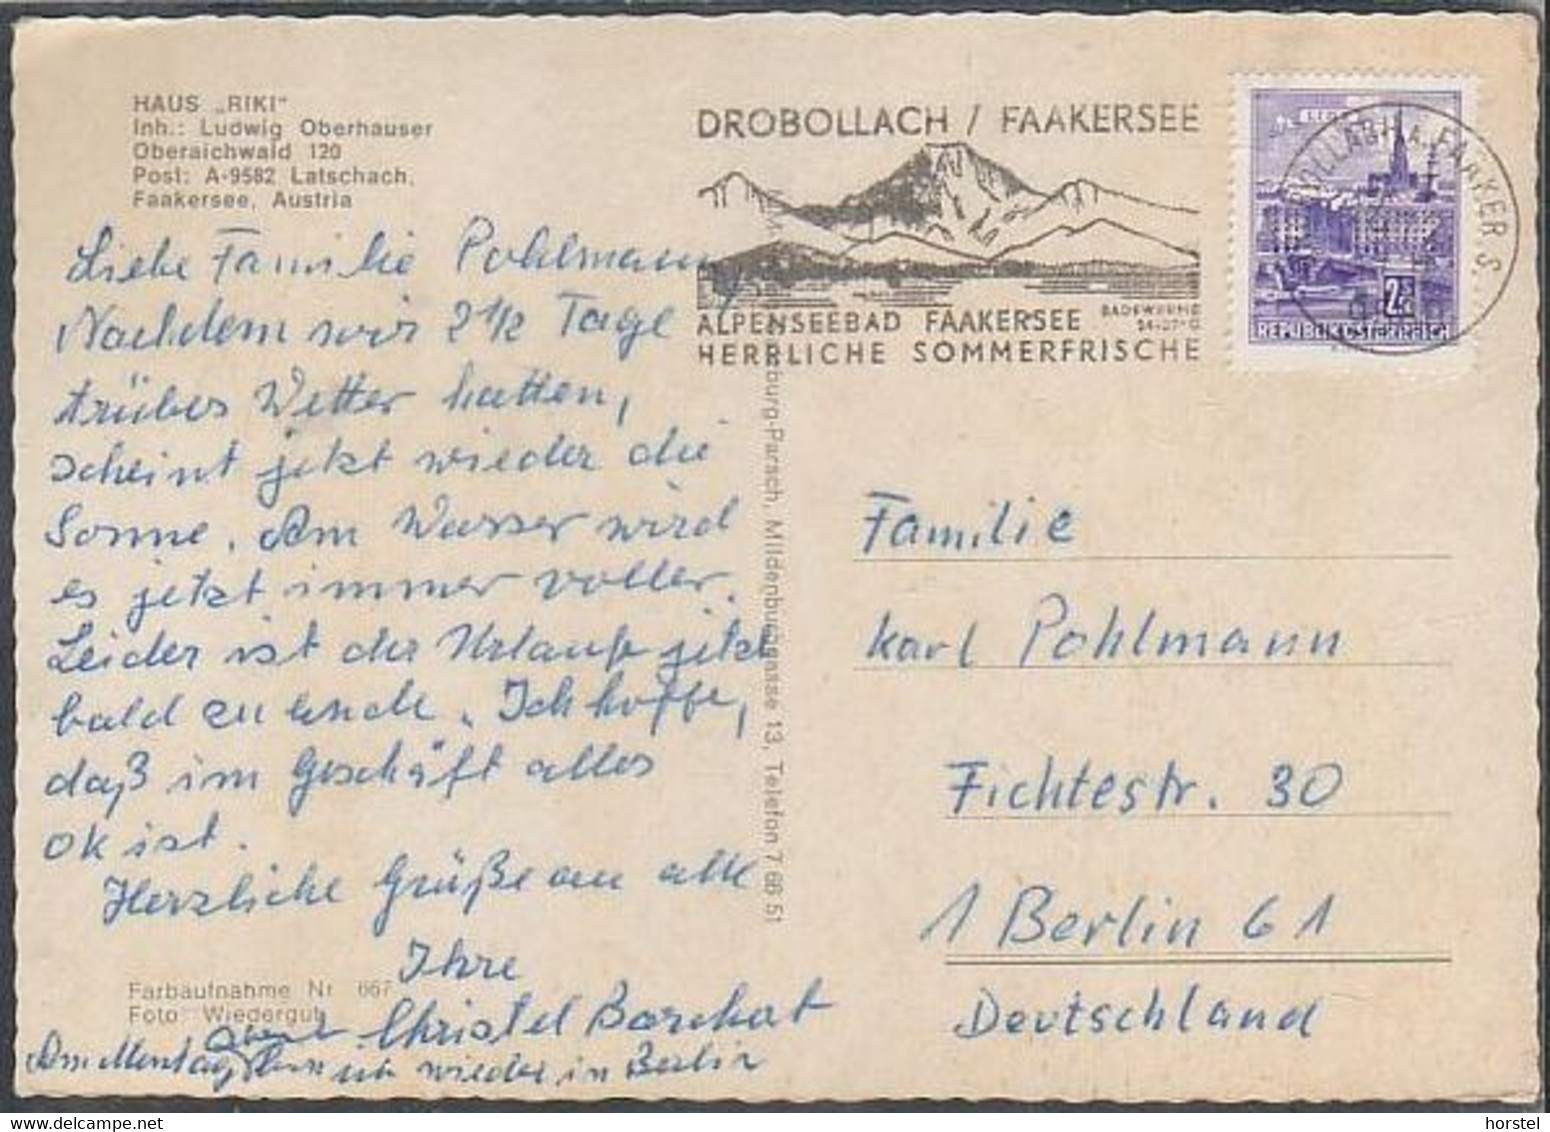 HAUS „RIKI"
Inh.: Ludwig Oberhauser
Oberaichwald 120
Post: A-9582 Latschach,
Faakersee, Austria
Liebe Familie Pohlmann,
Nachdem wir 2 1/2 Tage
trübes Wetter hatten,
scheint jetzt wieder die
Sonne. Am Wasser wird
es jetzt immer voller.
Leider ist der Urlaub jetzt
bald zu ende. Ich hoffe,
daß im Geschäft alles
ok ist.
Herzliche Grüße an alle
Ihre
Christel Borchat
Am Montag bin ich wieder in Berlin
Farbaufnahme Nr 667
Foto: Wiedergut
zburg-Parsch, Mildenburggasse 13, Telefon 7 66 51
DROBOLLACH / FAAKERSEE
ALPENSEEBAD FAAKERSEE
BADEWARME
24-27° C
HERRLICHE SOMMERFRISCHE
OLLACH A. FAAKER S.
REPUBLIK ÖSTERREICH
Familie
Karl Pohlmann
Fichtestr. 30
1 Berlin 61
Deutschland
horstel